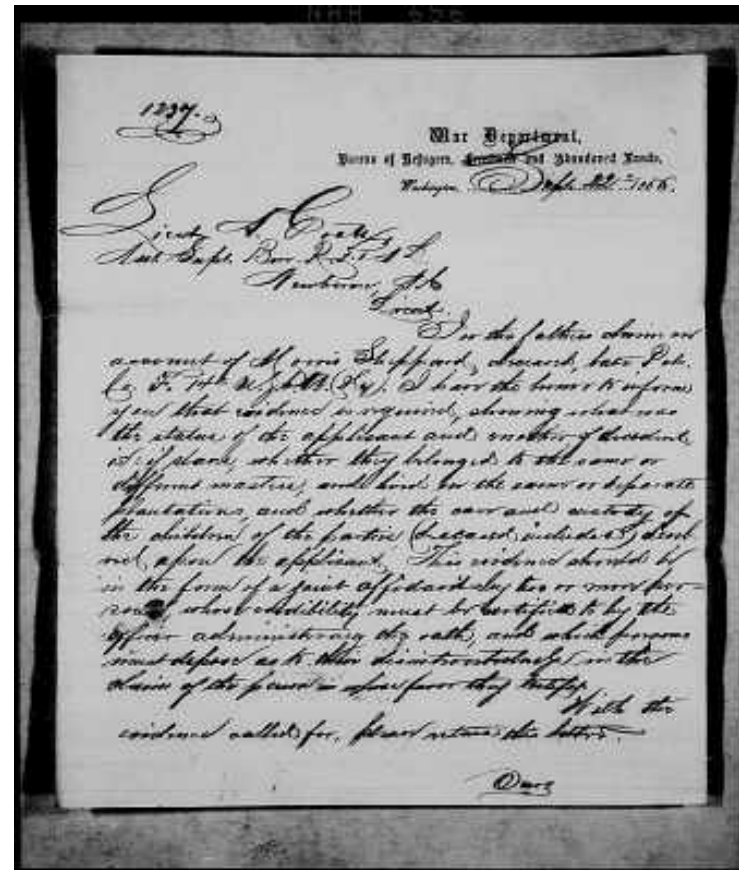 1237.
War Department,
Bureau of Refugees, Freedmen and Abandoned Lands,
Washington,
Lieut
Asst Supt. Bur. R. F. & A L
Newbern, N.C.
In the fathers claim on
account of Morris Sheppard, deceased, late Pvt.
Co. F. 14th U.S.C.A. (Hy). I have the honor to inform
you that evidence is required, showing what was
the status of the applicant and mother of decedent,
if slaves, whether they belonged to the same or
different masters, and lived on the same or separate
plantations, and whether the care and custody of
the children of the parties (deceased included) did
not upon the applicant. This evidence should be
in the form of a joint affidavit by two or more per-
sons, whose credibility must be certified to by the
officer administering the oath, and which persons
must depose as to their disinterestedness in the
claim of the person in whose favor they testify.
With the
evidence called for, please return this letter.
Over